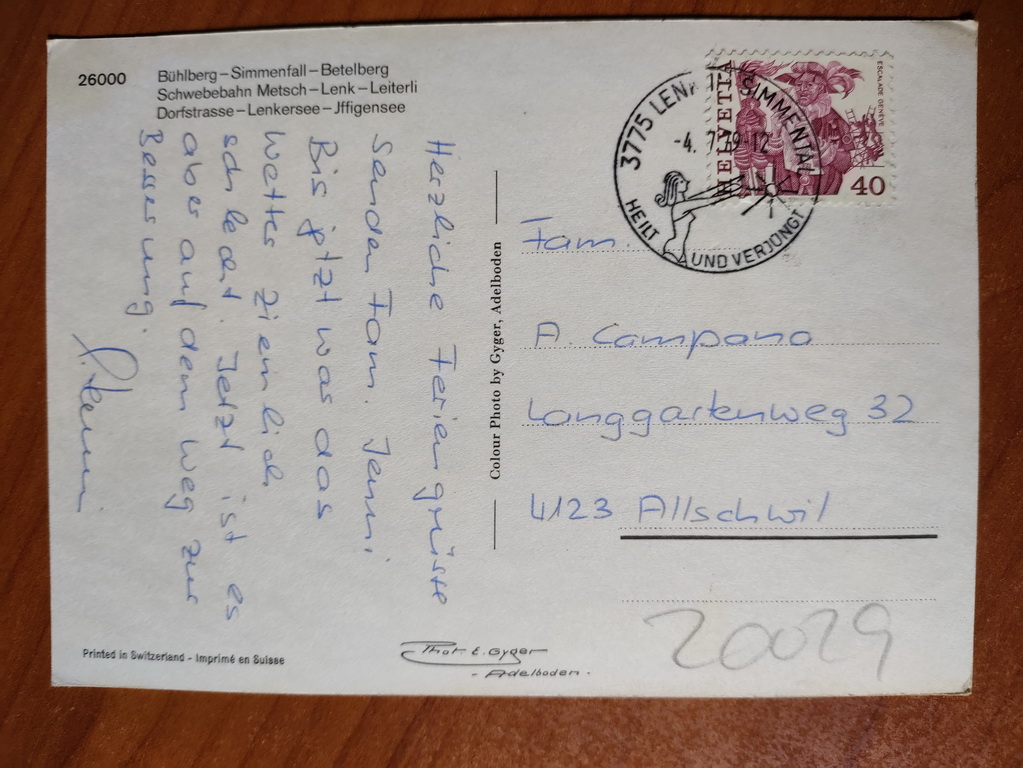 26000
Bühlberg – Simmenfall – Betelberg
Schwebebahn Metsch – Lenk – Leiterli
Dorfstrasse – Lenkersee – Jffigensee
Herzliche Feriengrüsse
senden Fam. Jenni
Bis jetzt war das
Wetter ziemlich
schlecht. Jetzt ist es
aber auf dem Weg zur
Besserung.
Colour Photo by Gyger, Adelboden
HELVETIA
ESCALADE GENÈVE
40
3775 LENK IM SIMMENTAL
-4. 7.79-12
HEILT UND VERJÜNGT
Fam.
A. Campana
Langgartenweg 32
4123 Allschwil
20029
Printed in Switzerland - Imprimé en Suisse
Phot E. Gyger
- Adelboden -